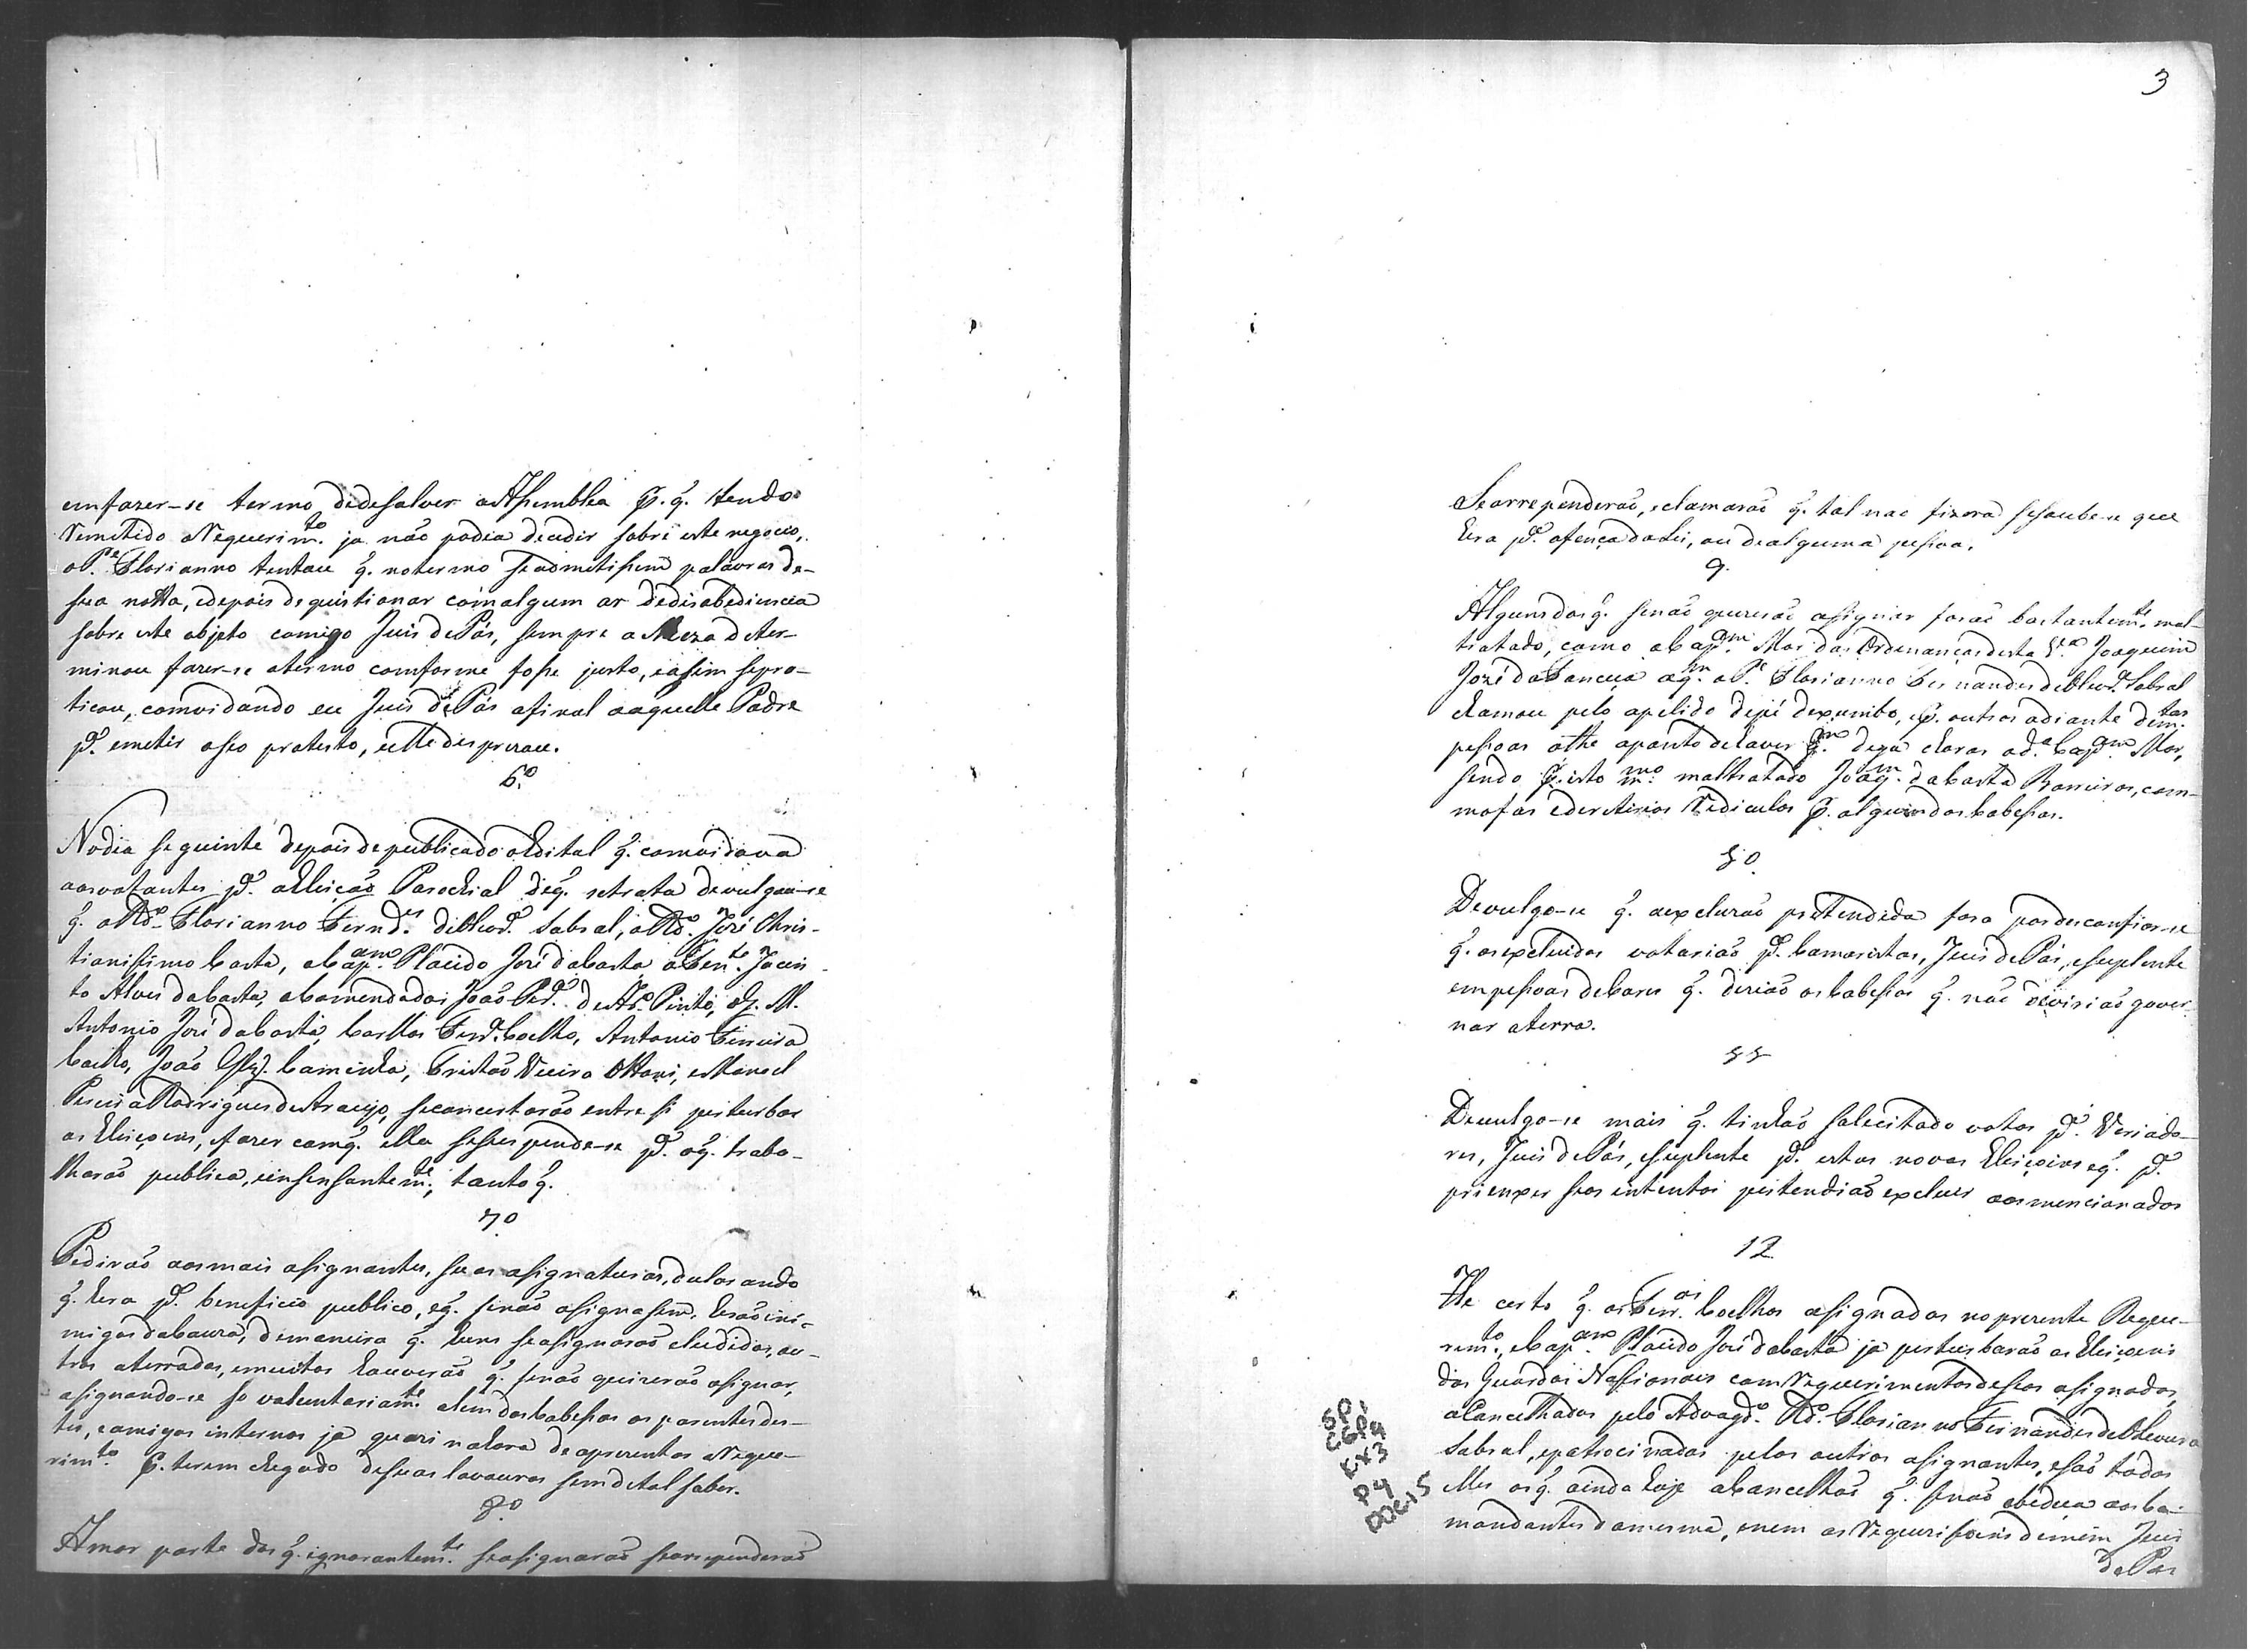 em fazer-se termo dedesalver aAssemblea p. q. tendo
Remetido oRequerim.to ja não podia decidir sobre este negocio,
oP.e Florianno tentou q. notermo seadmetissem palavras de-
sua notta, edepois de quistionar comalgum ar dedisobediencia
sobre este objeto comigo Juis dePás, sempre a Meza deter-
minou fazer-se otermo comforme fosse justo, easim sepra-
ticou, comvidando eu Juis dePás afinal aaquelle Padre
p.a emetir oseo protesto, eelle desprezou.
6.o
Nodia seguinte depois de publicado oEdital q. comvidava
aosvotantes p.a aEleição Parochial deq. setrata devulgou-se
q. oR.do Florianno Fernd.es deAlvd.a Sabral, oR.do José Chris-
tianissimo Costa, oCap.am Placido José daCosta oTen.te Jacin-
to Alves daCosta, oComendador João Per.a deAr.o Pinto, oG. M.
Antonio José daCosta, Carllos Ferr.a Coelho, Antonio Ferreira
Coelho, João Glz. Caminha, Cristão Vieira Ottoni, eManoel
Pereira Rodrigues deAraujo, seconcertarão entre si perturbar
as Eleiçoens, efazer comq. ella sesuspende-se p.a oq. traba-
lharão publica, eincensantem.te, tanto q.
7.o
Pedirão aosmais asignantes, suas asignaturas, declarando
q. hera p.a beneficio publico, eq. senão asignasem, herão ini-
migos dabauza, demaneira q. huns seasignarão eludidos, ou-
tros aterrados, emuitos houverão q. senão quizerão asignar,
asignando-se so valuntariam.te alem dosCabessas os parentes des-
tes, eamigos internos ja quazi nahora de aprezentar oReque-
rim.to p. terem chegado desuas lavouras sem detal saber.
8.o
Amor parte dos q. ignorantem.te seasignarão searrependerão
3
Searrependerão, eclamarão q. tal nao fizera sesoube-se que
hera p.a ofença daLei, ou dealguma pessoa.
9.
Alguns dos q. senão querião asignar forão bastantem.te mal-
tratado, como oCap.am Mor das Ordenanças desta V.a Joaquim
José aq.m oP.e Florianno Fernandes deAlvd.a Sabral
chamou pelo apelido depé dexumbo, ep. outros adiante dem.tas
pessoas athe aponto dehaver q.m deza chorar od.o Cap.am Mor,
sendo p. isto m.mo maltratado Joaq.m daCosta com
mofas Rediculos p. alguindosCabessas.
10
Devulgo-se q. aexcluzão pertendida fora pordesconfiar-se
q. osexcluidos votarião p.a Camaristas, Juis dePás, esuplente
empessoas q. dizião osCabessas q. não devirião gover-
nar aterra.
11
Devulgo-se mais q. tinhão salicitado votos p.a Veriado-
res, Juis dePás, esuplente p.a estas novas Eleiçoins eq. p.a
prienxer seos intentos pertendião excluir aosmencionados
12
He certo q. osFerr.as Coelhos asignados noprezente Reque-
rim.to, eCap.am Placido José daCosta ja perturbarão as Eleiçoens
dos Guardas Nassionais com Requerimentos deseos asignados,
aConcelhados pelo Advogd.o R.do Florianno Fernandes deAlevura
Sabral, epatrocinados pelos outros asignantes, esão todos
elles osq. ainda hoje aconcelhão q. senão obedeça aosCo-
mandantes damesma, enem as Requeisiçoins demim Juis
dePas
SP1
C6P4
EX3
P4
DOC15